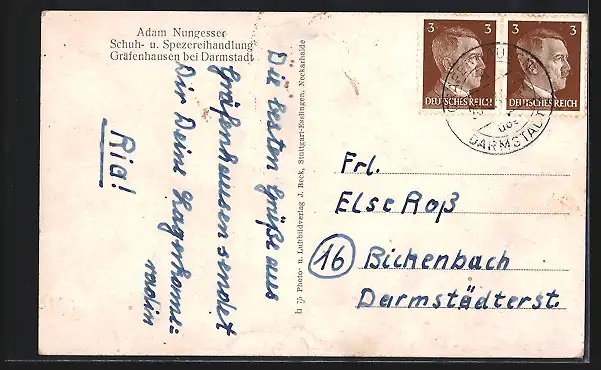 Adam Nungesser
Schuh- u. Spezereihandlung
Gräfenhausen bei Darmstadt
Die besten Grüße aus
Gräfenhausen sendet
Dir Deine Lagerkame-
radin
Ria!
h 75 Photo- u. Luftbildverlag J. Beck, Stuttgart-Esslingen, Neckarhalde
3 3
DEUTSCHES REICH
3 3
DEUTSCHES REICH
DARMSTADT
Frl.
Else Roß
16 Bickenbach
Darmstädterst.